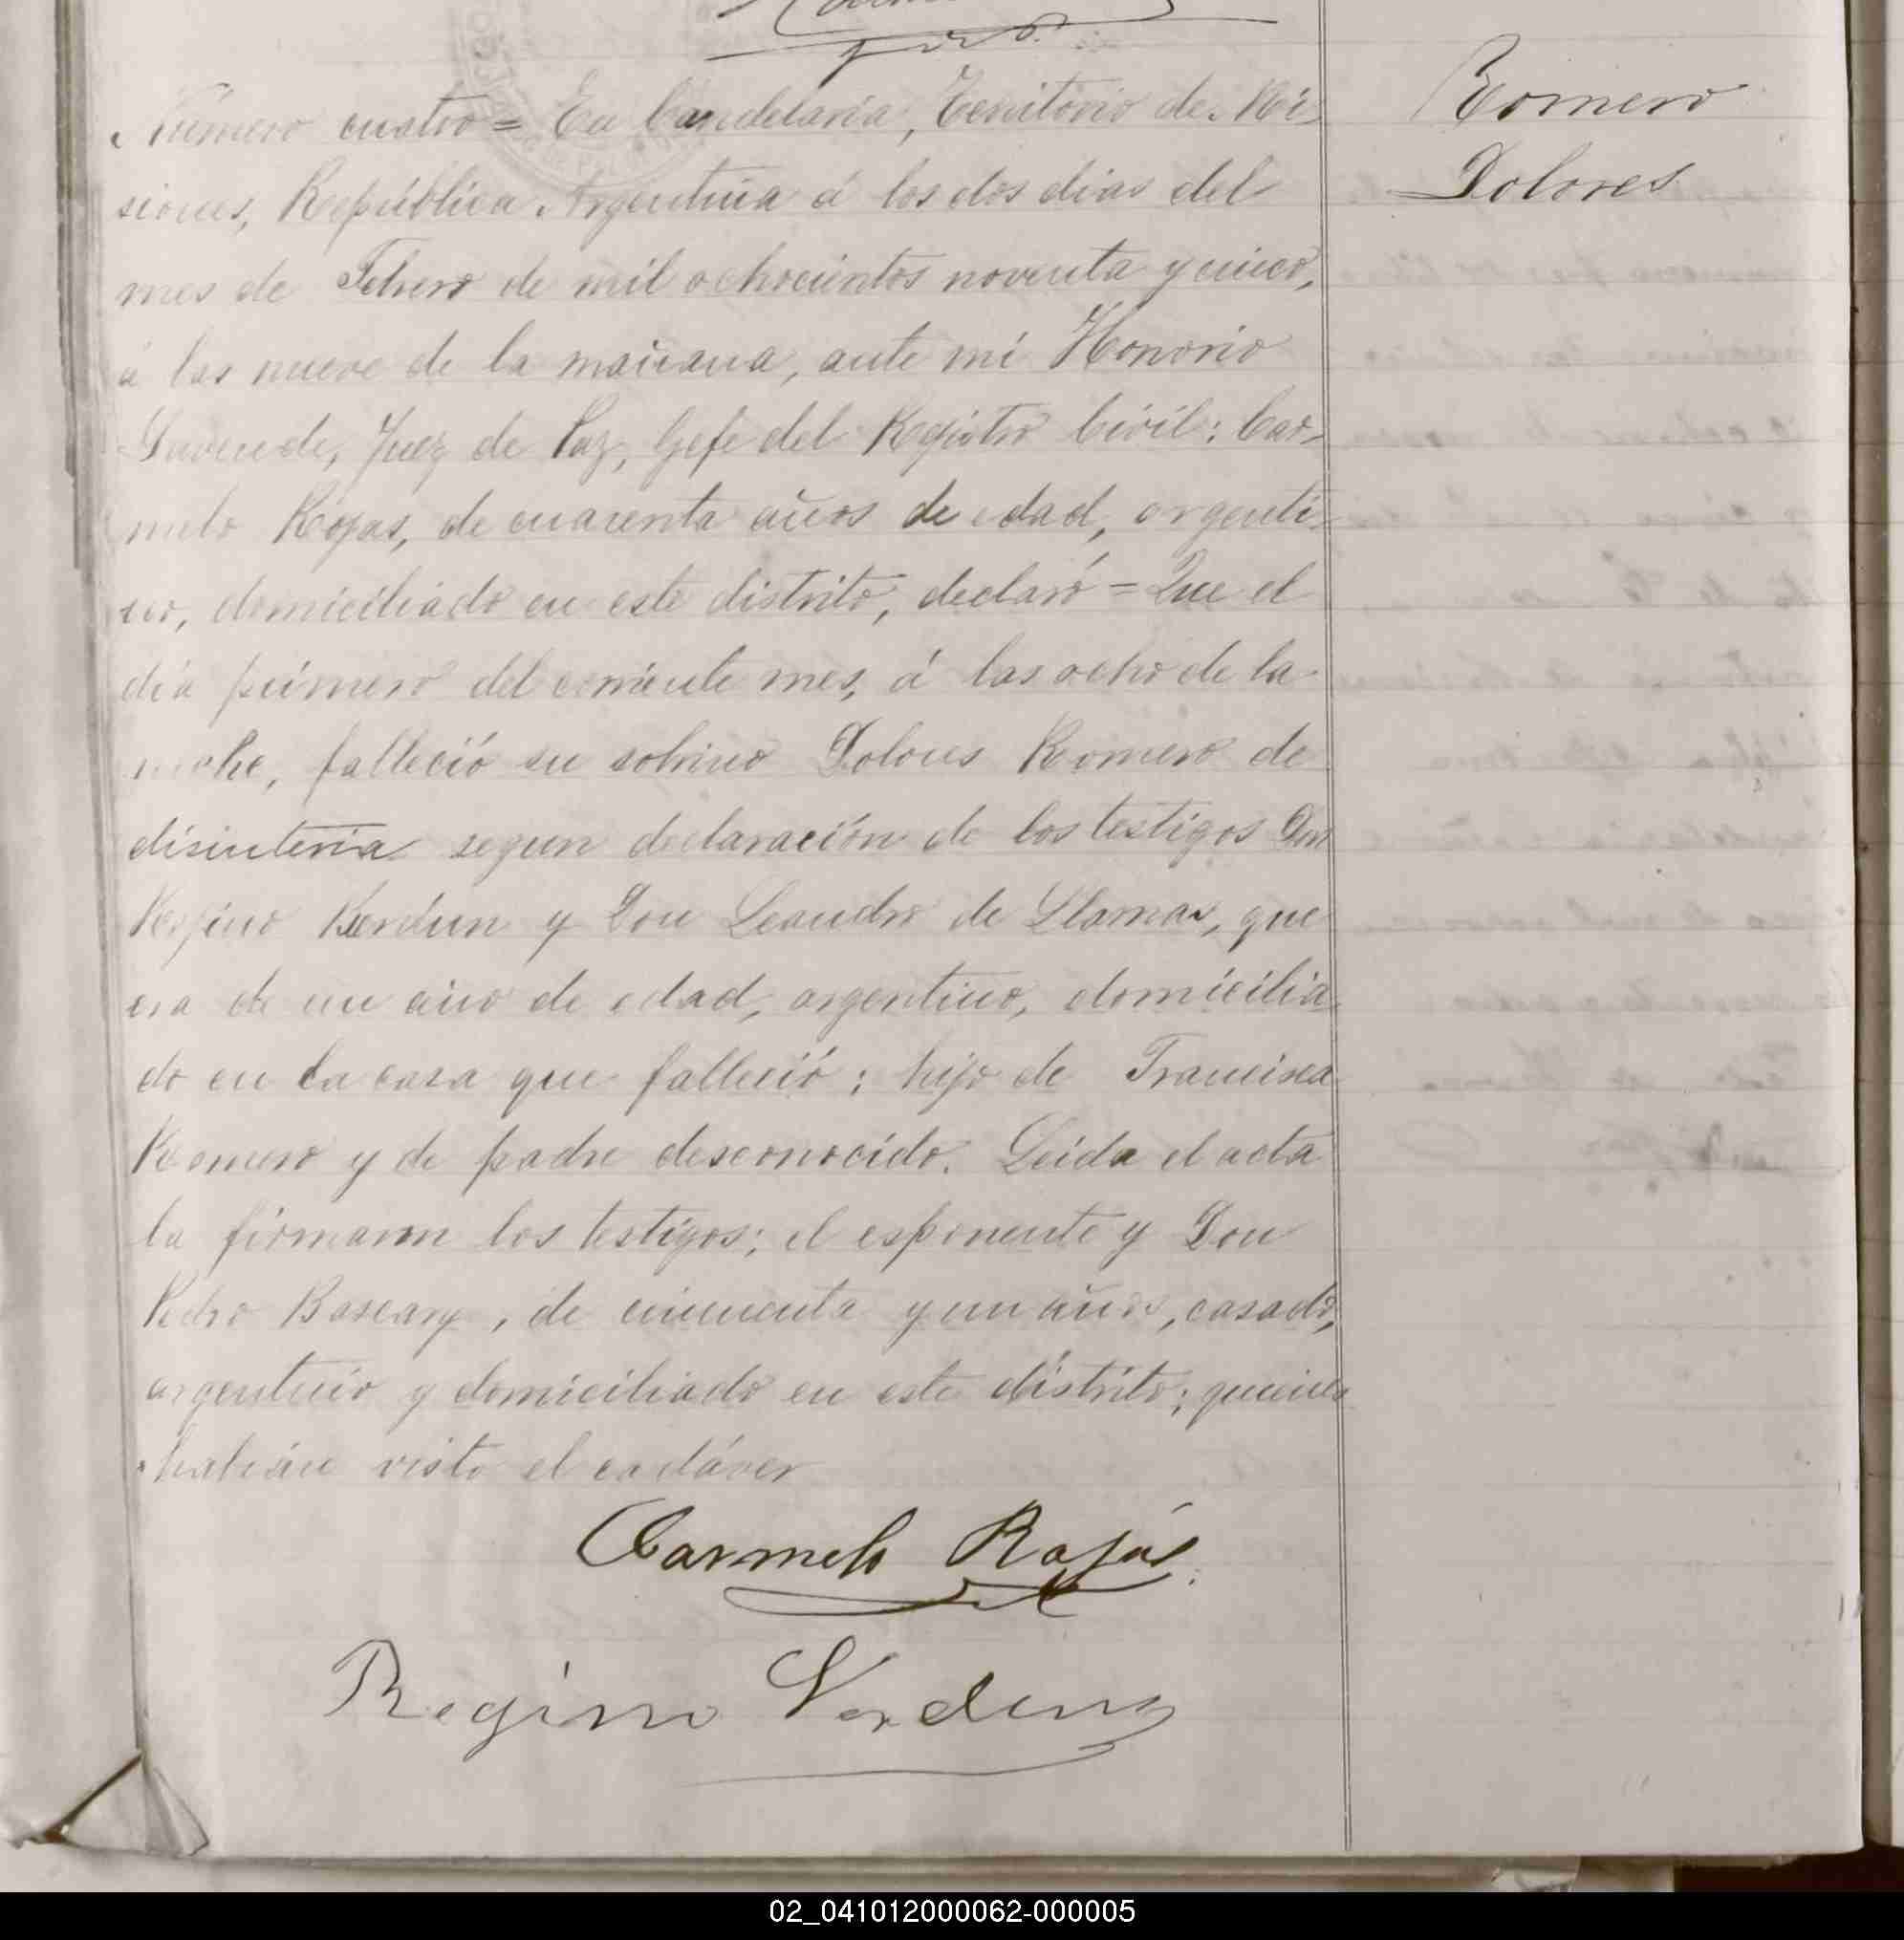 Número cuatro = En Candelaria, Territorio de Mi-
siones, República Argentina á los dos dias del
mes de Febrero de mil ochocientos noventa y cinco,
á las nueve de la mañana, ante mi Honorio
Juez de Paz, Gefe del Registro Civil: Car-
melo Rojas, de cuarenta años de edad, argenti-
no, domiciliado en este distrito, declaró = Que el
dia primero del corriente mes, á las ocho de la
noche, falleció su sobrino Dolores Romero de
disinteria segun declaración de los testigos Don
Regino Verdun y Don Leandro de Llamas, que
era de un año de edad, argentino, domicilia-
do en la casa que falleció; hijo de Francisca
Romero y de padre desconocido. Leida el acta
la firmaron los testigos; el esponente y Don
Pedro Bascary, de cincuenta y un años, casado,
argentino y domiciliado en este distrito; quienes
habian visto el cadáver
Carmelo Rojas.
Regino Verdun
Romero
Dolores
02_041012000062-000005